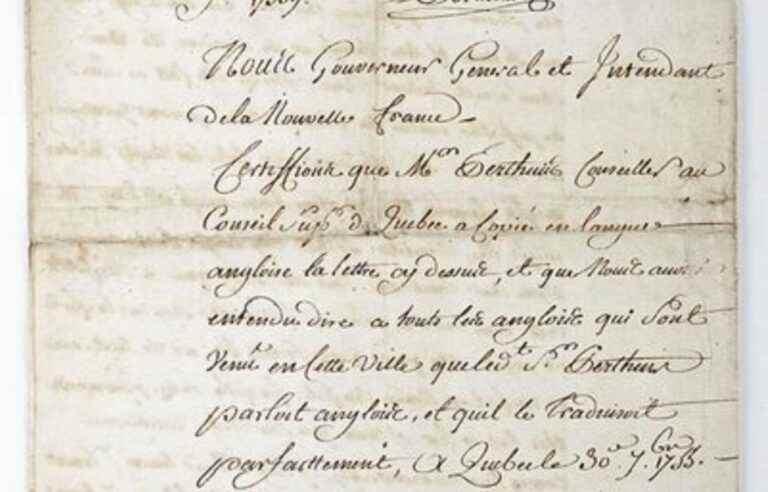 Nous Gouverneur General et Intendant
de la Nouvelle france –
Certiffions que M.on Perthuis Conseiller au
Conseil Sup.r d. Quebec a Copié en langue
angloise la lettre cy dessus, et que Nous avons
entendu dire a touts les anglois qui sont
Venus en Cette Ville que led.t S.r Perthuis
parloit anglois, et quil le Traduisoit
parfaittement, A Quebec le 30.e 7.bre 1755.